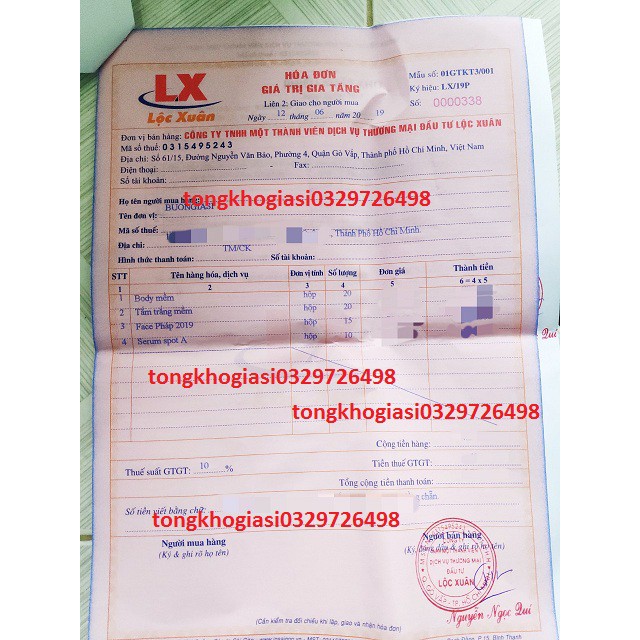 LX
Lộc Xuân
HÓA ĐƠN
GIÁ TRỊ GIA TĂNG
Liên 2: Giao cho người mua
Ngày 12 tháng 06 năm 2019
Mẫu số: 01GTKT3/001
Ký hiệu: LX/19P
Số: 0000338
Đơn vị bán hàng: CÔNG TY TNHH MỘT THÀNH VIÊN DỊCH VỤ THƯƠNG MẠI ĐẦU TƯ LỘC XUÂN
Mã số thuế: 0315495243
Địa chỉ: Số 61/15, Đường Nguyễn Văn Bảo, Phường 4, Quận Gò Vấp, Thành phố Hồ Chí Minh, Việt Nam
Điện thoại: - Fax:
Số tài khoản:
tongkhogiasi0329726498
Họ tên người mua hàng:
Tên đơn vị:
Mã số thuế:
Địa chỉ: , Thành Phố Hồ Chí Minh.
Hình thức thanh toán: TM/CK Số tài khoản:
STT Tên hàng hóa, dịch vụ Đơn vị tính Số lượng Đơn giá Thành tiền
1 2 3 4 5 6 = 4 x 5
1 Body mềm hộp 20
2 Tắm trắng mềm hộp 20
3 Face Pháp 2019 hộp 15
4 Serum spot A hộp 10
tongkhogiasi0329726498
tongkhogiasi0329726498
Cộng tiền hàng:
Thuế suất GTGT: 10 % Tiền thuế GTGT:
Tổng cộng tiền thanh toán:
Số tiền viết bằng chữ: chẵn.
tongkhogiasi0329726498
Người mua hàng
(Ký & ghi rõ họ tên)
Người bán hàng
(Ký, đóng dấu & ghi rõ họ tên)
DỊCH VỤ THƯƠNG MẠI
ĐẦU TƯ
LỘC XUÂN
Nguyễn Ngọc Quí
(Cần kiểm tra đối chiếu khi lập, giao và nhận hóa đơn)
Quí